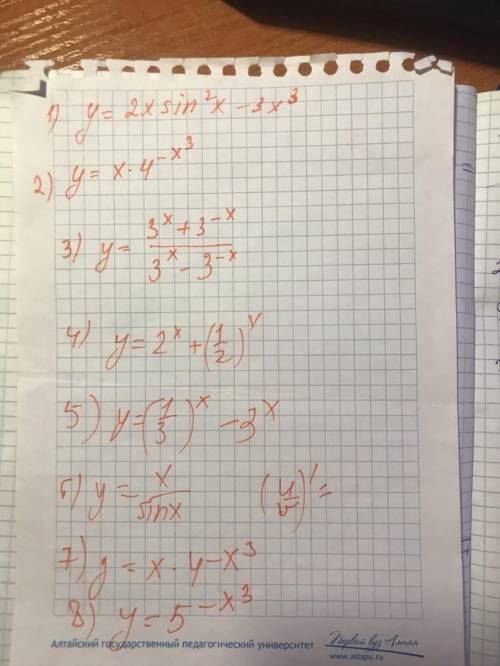 1) y = 2x sin²x − 3x³
2) y = x · 4^(−x³)
3) y = (3^x + 3^(−x)) / (3^x − 3^(−x))
4) y = 2^x + (1/2)^x
5) y = (1/3)^x − 3^x
6) y = x / sin x (u/v)' =
7) y = x · 4 − x³
8) y = 5^(−x³)
Алтайский государственный педагогический университет Первый вуз Алтая
www.altspu.ru